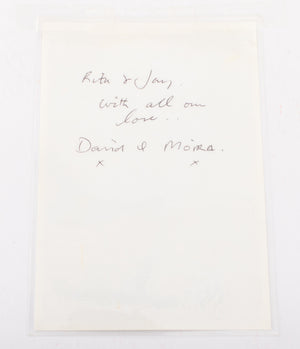 Rita & Jay.
with all our
love..
David & Moira.
x x